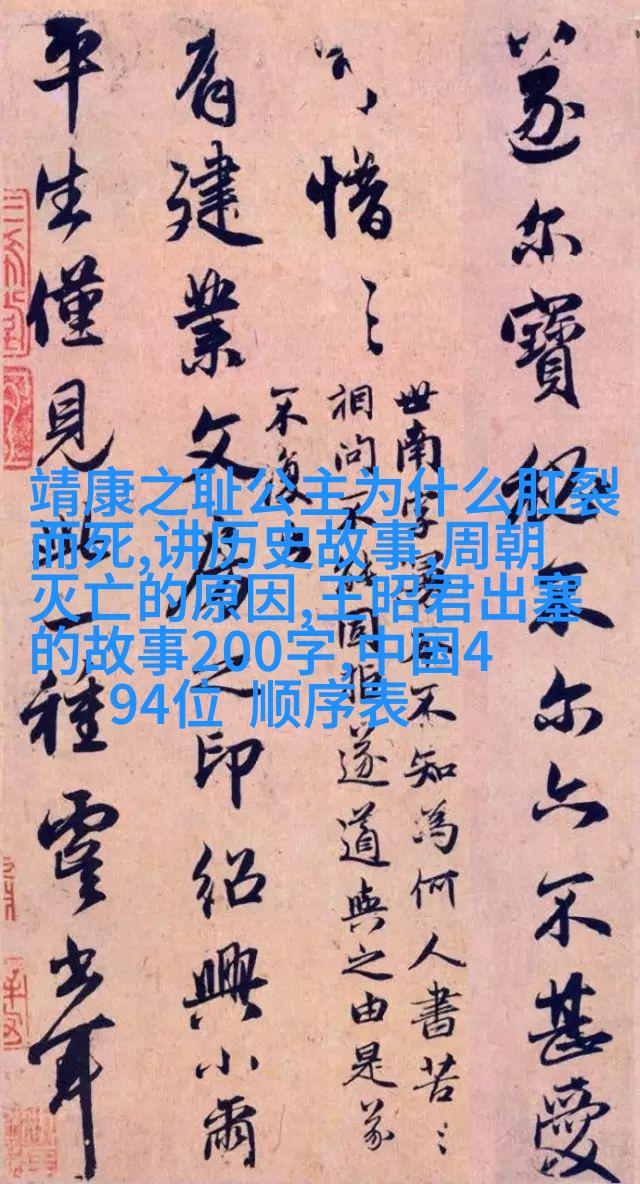 靖康之耻公主为什么肛裂
而死,讲历史故事,周朝
灭亡的原因,王昭君出塞
的故事200字,中国4
94位 顺序表
尔寳秘不尔亦不甚愛
世南字不知為何人書苦〻
相問不固非遂道與之由是
不復
惜〻
有建業文房之印紹興小
平生僅見此一種書耳